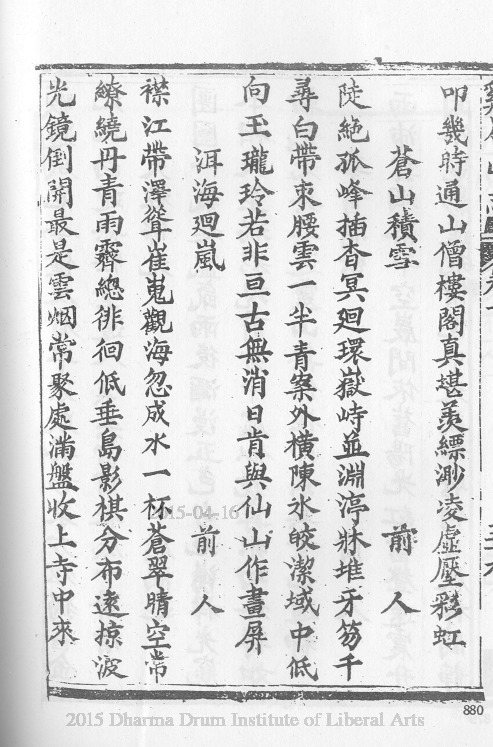 叩幾時通山僧樓閣真堪羨縹渺凌虛壓彩虹
蒼山積雪 前人
陡絕孤峰插杳冥廻環嶽峙並淵渟牀堆牙笏千
尋白帶束腰雲一半青案外橫陳氷皎潔域中低
向玉瓏玲若非亘古無消日肯與仙山作畫屏
洱海廻嵐 前人
襟江帶澤聳崔嵬觀海忽成水一杯蒼翠晴空常
繚繞丹青雨霽總徘徊低垂島影棋分布遠掠波
光鏡倒開最是雲烟常聚處滿盤收上寺中來
880
2015-04-16
2015 Dharma Drum Institute of Liberal Arts